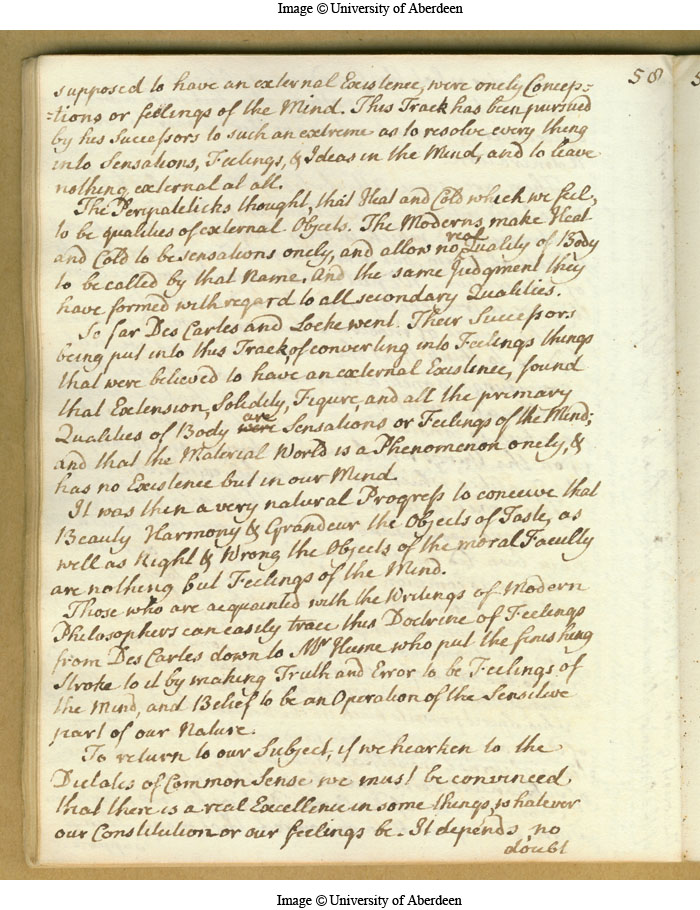 Image © University of Aberdeen
58
supposed to have an external Existence, were onely Concep=
=tions or feelings of the Mind. This Track has been pursued
by his Successors to such an extreme as to resolve every thing
into Sensations, Feelings, & Ideas in the Mind, and to leave
nothing external at all.
The Peripateticks thought, that Heat and Cold which we feel,
to be qualities of external Objects. The Moderns make Heat
and Cold to be sensations onely, and allow no real Quality of Body
to be called by that Name. And the same Judgment they
have formed with regard to all secondary Qualities.
So far Des Cartes and Locke went. Their Successors
being put into this Track of converting into Feelings things
that were believed to have an external Existence, found
that Extension, Solidity, Figure, and all the primary
Qualities of Body were are Sensations or Feelings of the Mind;
and that the Material World is a Phenomenon onely, &
has no Existence but in our Mind.
It was then a very natural Progress to conceive that
Beauty Harmony & Grandeur the Objects of Taste, as
well as Right & Wrong the Objects of the moral Faculty
are nothing but Feelings of the Mind.
Those who are acquainted with the Writings of Modern
Philosophers can easily trace this Doctrine of Feelings
from Des Cartes down to Mr Hume who put the finishing
stroke to it by making Truth and Error to be Feelings of
the Mind, and Belief to be an Operation of the Sensitive
part of our Nature.
To return to our Subject, if we hearken to the
Dictates of Common Sense we must be convinced
that there is a real Excellence in some things, whatever
our Constitution or our feelings be. It depends no
doubt
Image © University of Aberdeen